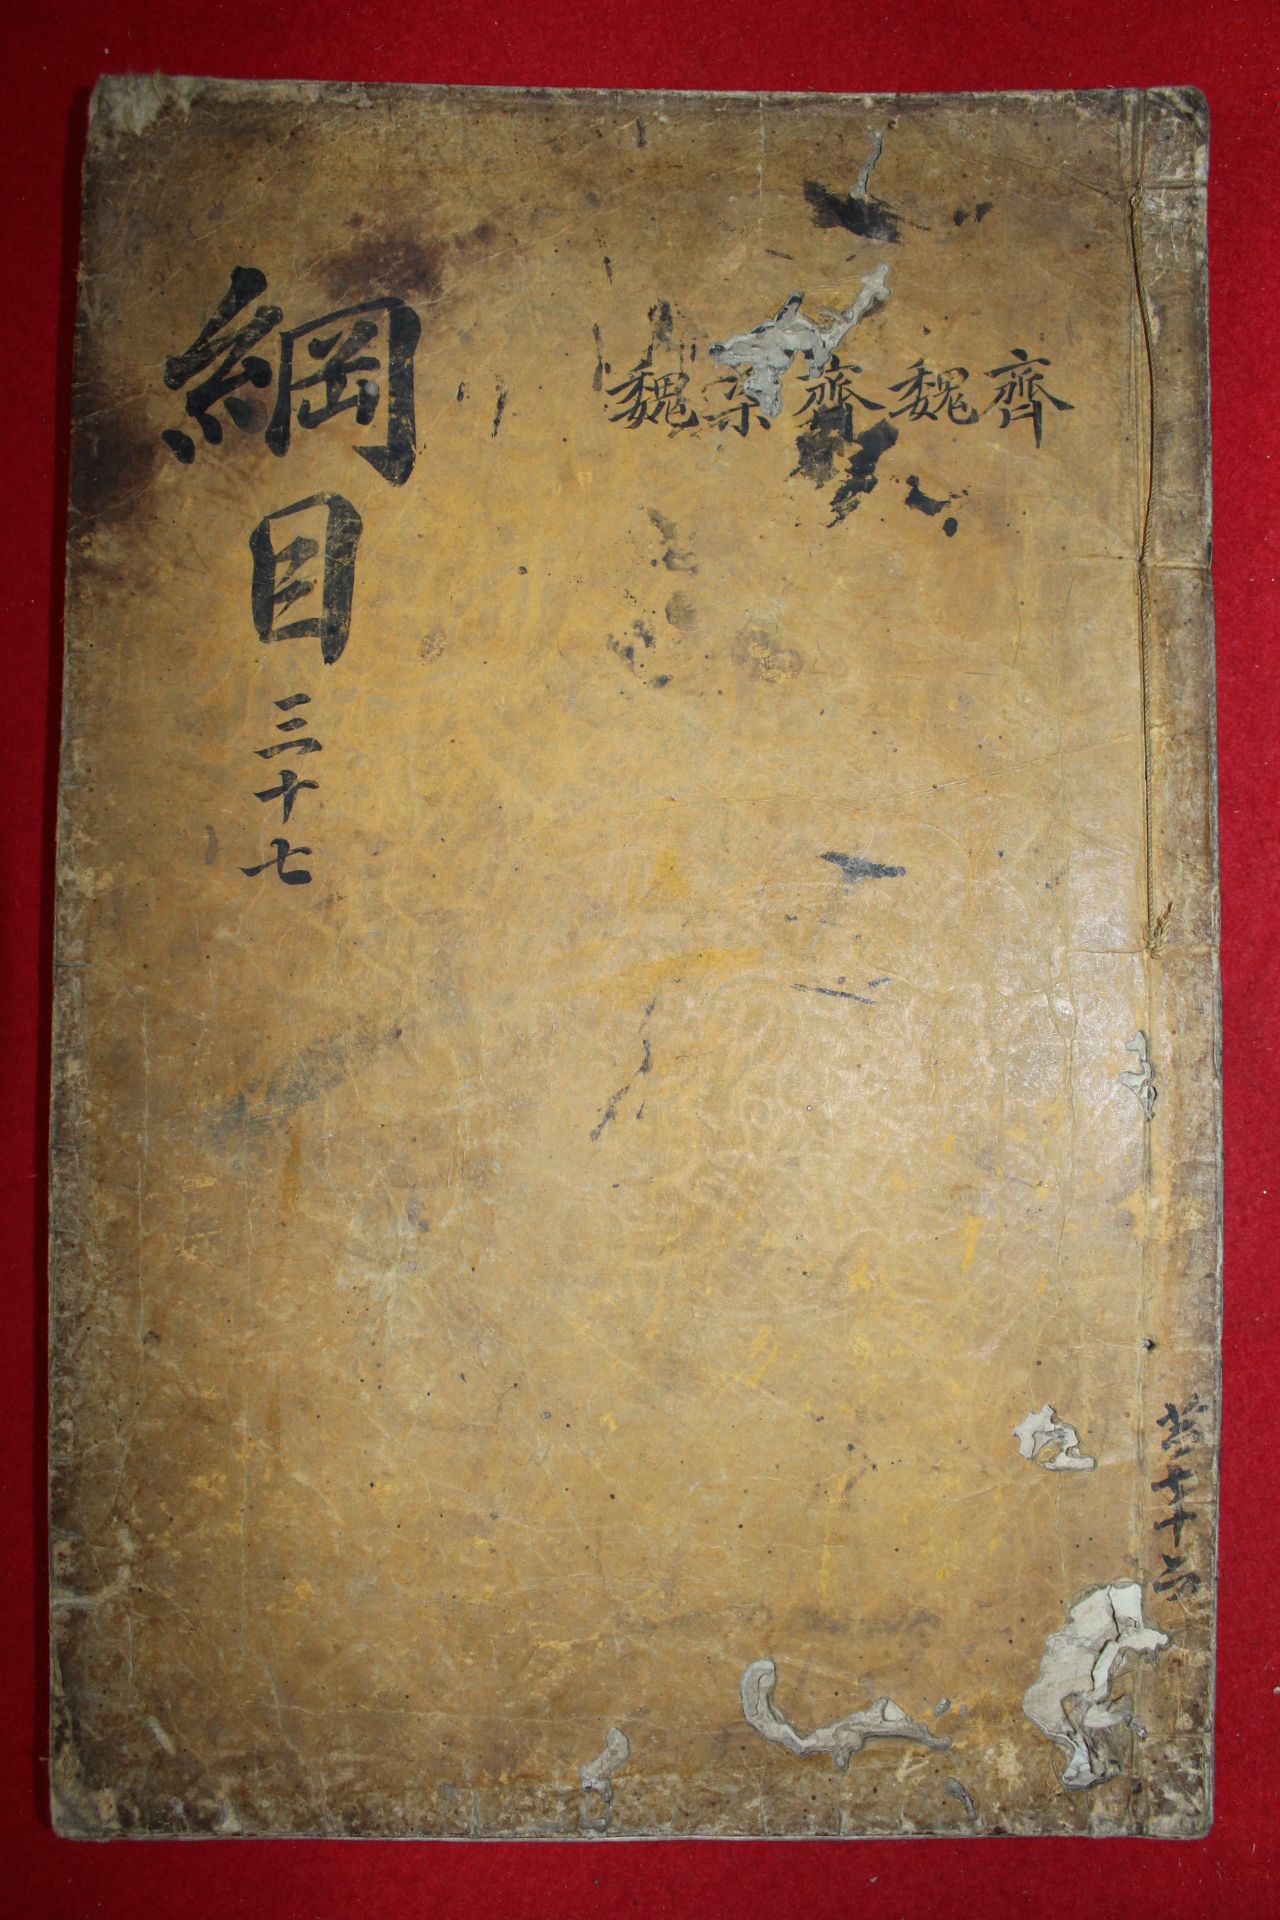 齊魏齊梁魏
綱目
三十七
共七十六